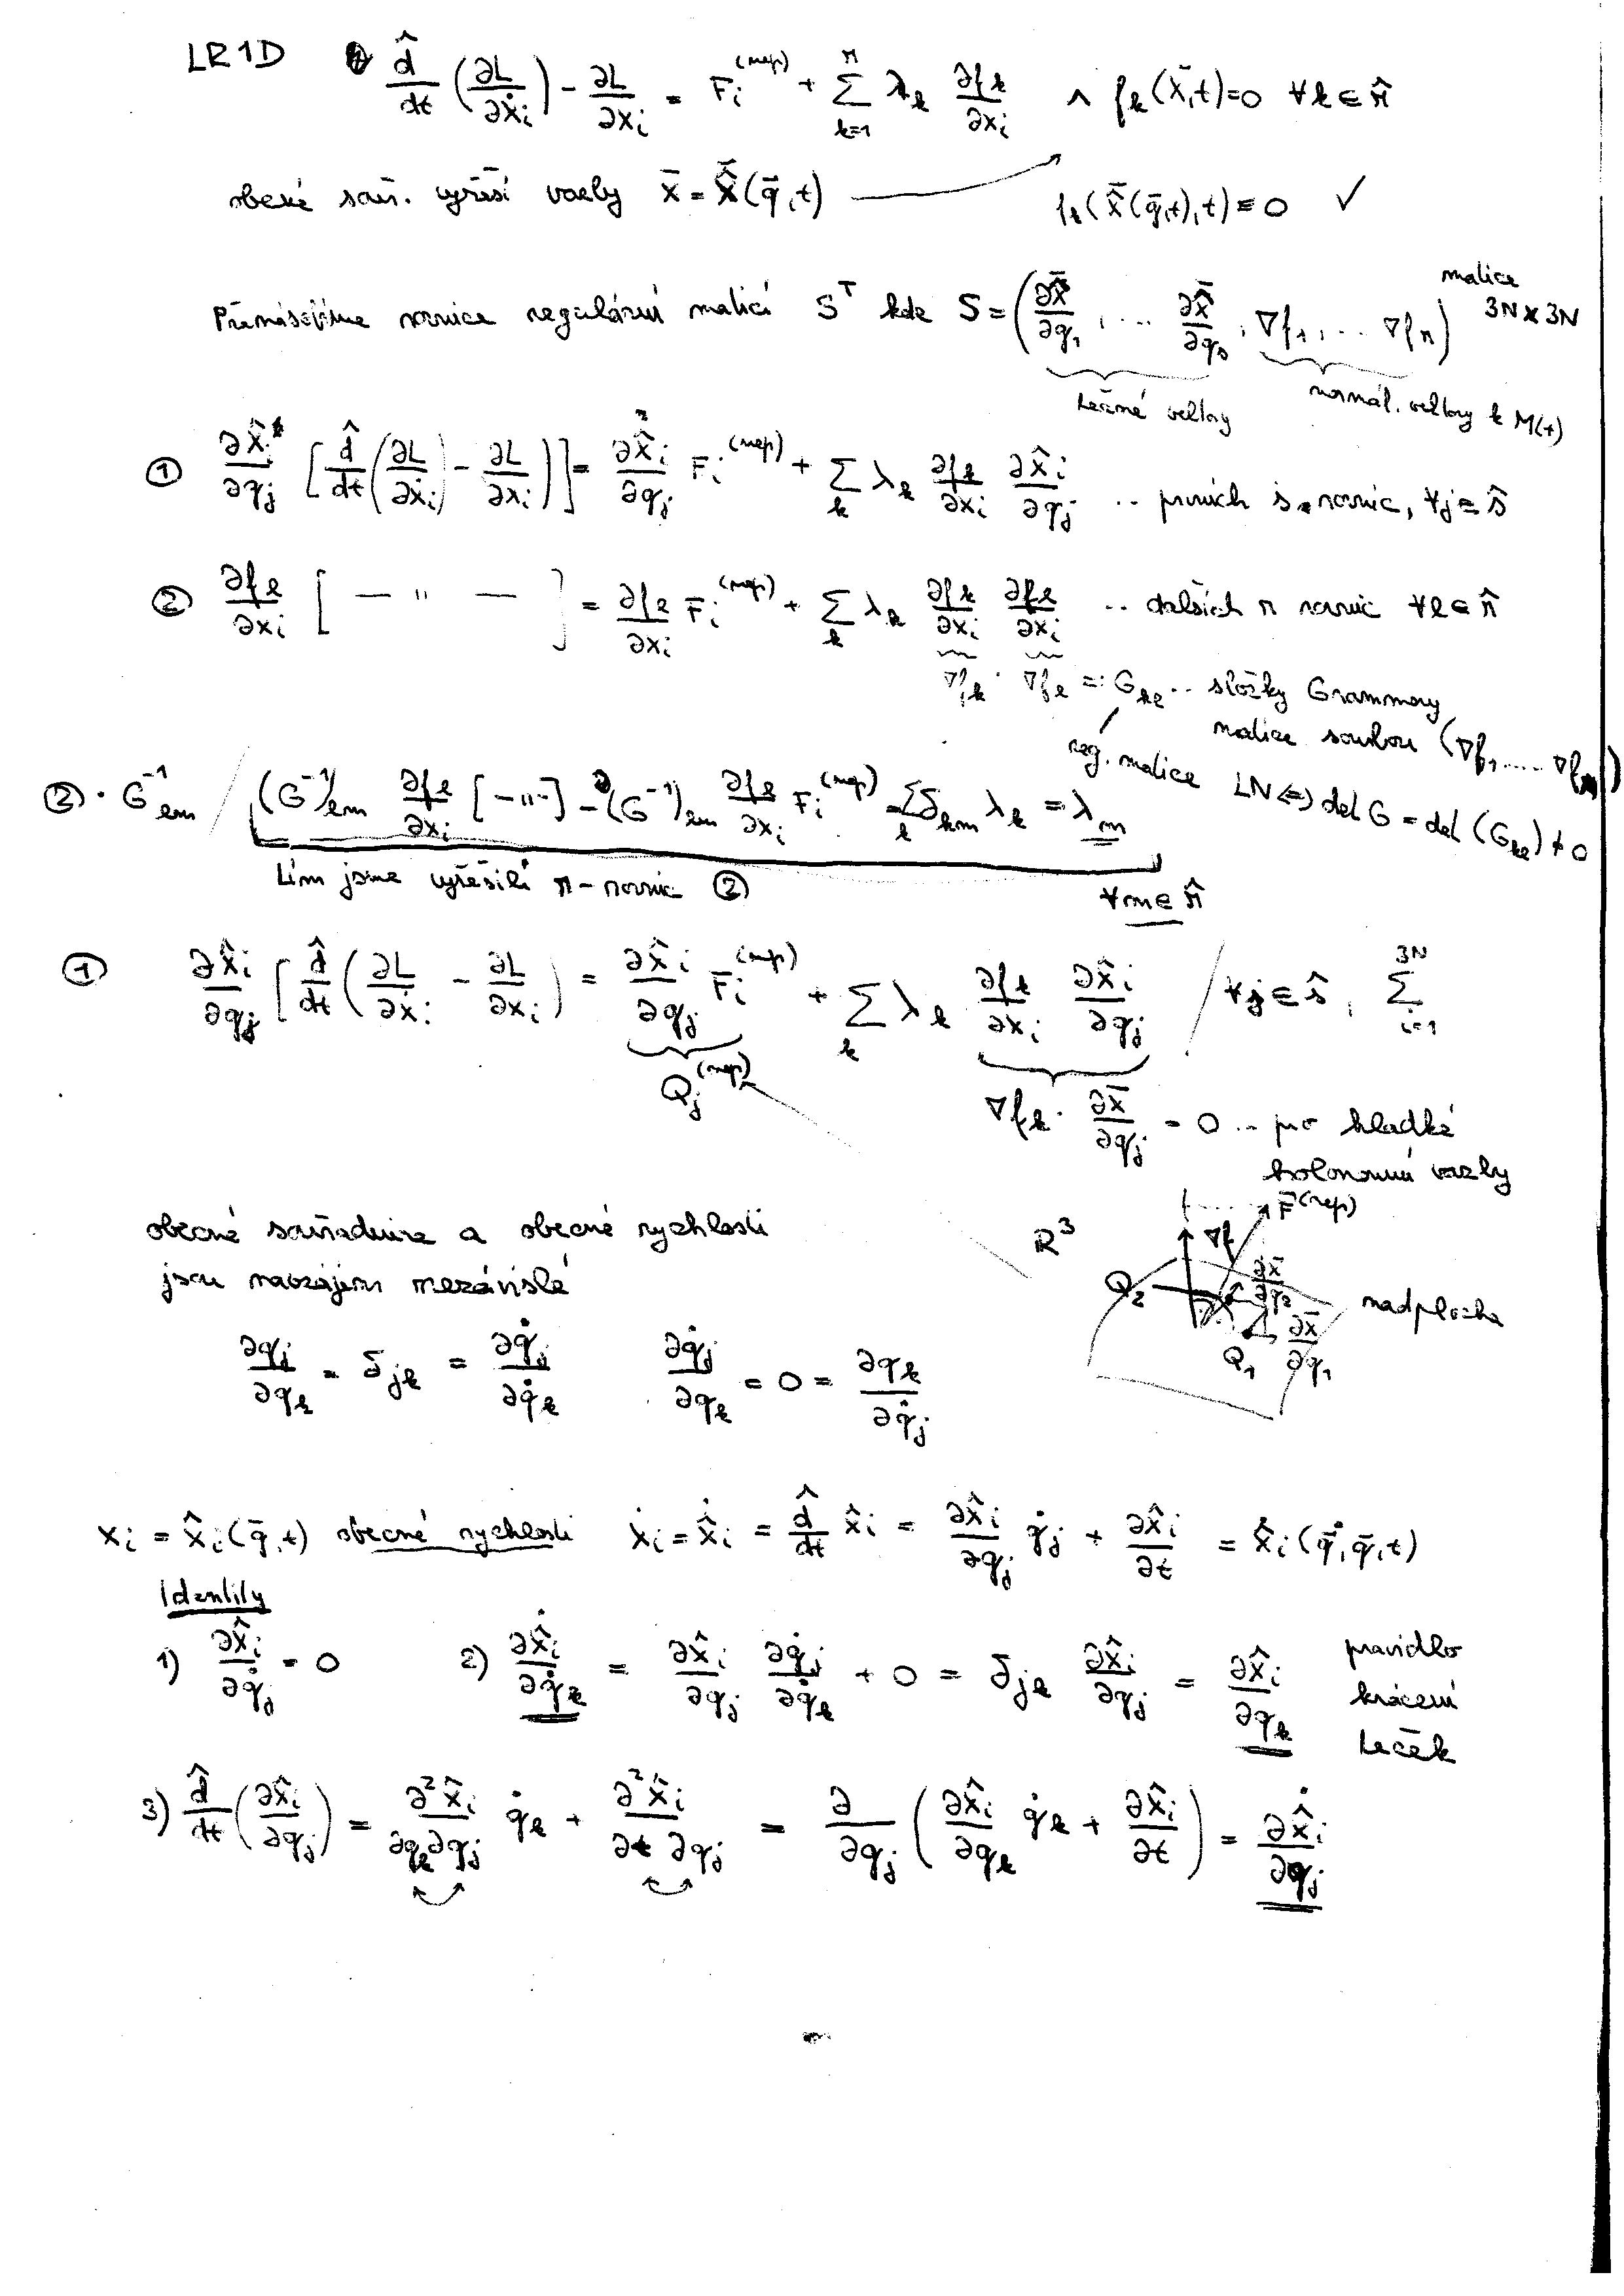 LR1D d̂/dt (∂L/∂ẋᵢ) − ∂L/∂xᵢ = Fᵢ^(nep) + Σ_{k=1}^{r} λₖ ∂fₖ/∂xᵢ ∧ fₖ(x̄,t)=0 ∀k∈r̂
obecné souř. vyřeší vazby x̄ = x̂̄(q̄,t) → fₖ(x̂̄(q̄,t),t) ≡ 0 ✓
Přenásobíme rovnice regulární maticí Sᵀ kde S = (∂x̂̄/∂q₁, ... ∂x̂̄/∂qₛ, ∇f₁, ... ∇fᵣ) matice 3N×3N
tečné vektory normál. vektory k M(t)
① ∂x̂ᵢ/∂qⱼ [d̂/dt (∂L/∂ẋᵢ) − ∂L/∂xᵢ)] = ∂x̂ᵢ/∂qⱼ Fᵢ^(nep) + Σₖ λₖ ∂fₖ/∂xᵢ ∂x̂ᵢ/∂qⱼ .. prvních s rovnic, ∀j∈ŝ
② ∂fₗ/∂xᵢ [ — " — ] = ∂fₗ/∂xᵢ Fᵢ^(nep) + Σₖ λₖ ∂fₖ/∂xᵢ ∂fₗ/∂xᵢ .. dalších r rovnic ∀l∈r̂
∇fₖ · ∇fₗ =: Gₖₗ .. složky Grammovy
matice souboru (∇f₁, .... ∇fᵣ)
reg. matice LN ⇔ det G = det (Gₖₗ) ≠ 0
② · G⁻¹ₗₘ / (G⁻¹)ₗₘ ∂fₗ/∂xᵢ [−"−] − (G⁻¹)ₗₘ ∂fₗ/∂xᵢ Fᵢ^(nep) = Σₖ δₖₘ λₖ = λₘ
tím jsme vyřešili r-rovnic ② ∀m∈r̂
① ∂x̂ᵢ/∂qⱼ [d̂/dt (∂L/∂ẋᵢ − ∂L/∂xᵢ) = ∂x̂ᵢ/∂qⱼ Fᵢ^(nep) + Σₖ λₖ ∂fₖ/∂xᵢ ∂x̂ᵢ/∂qⱼ / ∀j∈ŝ, Σ_{i=1}^{3N}
Qⱼ^(nep)
∇fₖ · ∂x̄/∂qⱼ = 0 .. pro hladké
holonomní vazby
obecné souřadnice a obecné rychlosti
jsou navzájem nezávislé
R³ ∇f F̄^(nep) Q₂ ∂x̄/∂q₂ Q₁ ∂x̄/∂q₁ nadplocha
∂qⱼ/∂qₖ = δⱼₖ = ∂q̇ⱼ/∂q̇ₖ ∂q̇ⱼ/∂qₖ = 0 = ∂qₖ/∂q̇ⱼ
xᵢ = x̂ᵢ(q̄,t) obecné rychlosti ẋᵢ = x̂̇ᵢ = d̂/dt x̂ᵢ = ∂x̂ᵢ/∂qⱼ q̇ⱼ + ∂x̂ᵢ/∂t = x̂̇ᵢ(q̄̇,q̄,t)
Identity
1) ∂x̂ᵢ/∂q̇ⱼ = 0 2) ∂x̂̇ᵢ/∂q̇ₖ = ∂x̂ᵢ/∂qⱼ ∂q̇ⱼ/∂q̇ₖ + 0 = δⱼₖ ∂x̂ᵢ/∂qⱼ = ∂x̂ᵢ/∂qₖ pravidlo
krácení
teček
3) d̂/dt (∂x̂ᵢ/∂qⱼ) = ∂²x̂ᵢ/∂qₖ∂qⱼ q̇ₖ + ∂²x̂ᵢ/∂t ∂qⱼ = ∂/∂qⱼ (∂x̂ᵢ/∂qₖ q̇ₖ + ∂x̂ᵢ/∂t) = ∂x̂̇ᵢ/∂qⱼ